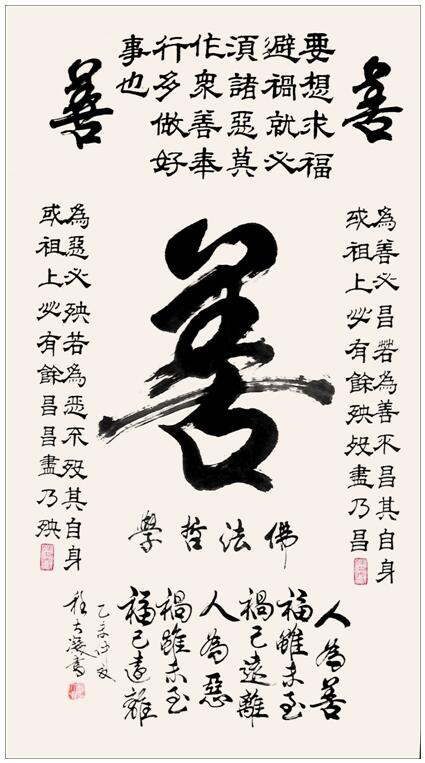 善
要想求福
避禍就必
須諸惡莫
作衆善奉
行多做好
事也
善
為善必昌若為善不昌其自身
或祖上必有餘殃殃盡乃昌
善
為惡必殃若為惡不殃其自身
或祖上必有餘昌昌盡乃殃
佛法哲學
人為善
福雖未至
禍已遠離
人為惡
禍雖未至
福已遠離
乙亥
書